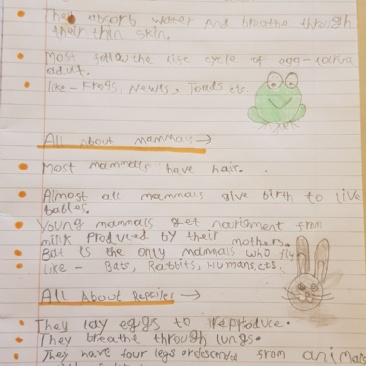 They absorb water and breathe through
their thin skin.
Most follow the life cycle of egg-larva
adult.
like - Frogs, Newts, Toads etc.
All About mammals →
Most mammals have hair.
Almost all mammals give birth to live
babies.
Young mammals get nourishment from
milk produced by their mothers.
Bat is the only mammals who fly
like - Bats, Rabbits, Humans, etc.
All About Reptiles →
They lay eggs to reproduce.
They breathe through lungs.
They have four legs or descended from animals